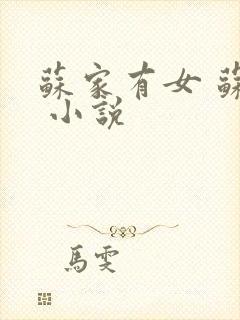 蘇家有女 蘇
小說
馬雯